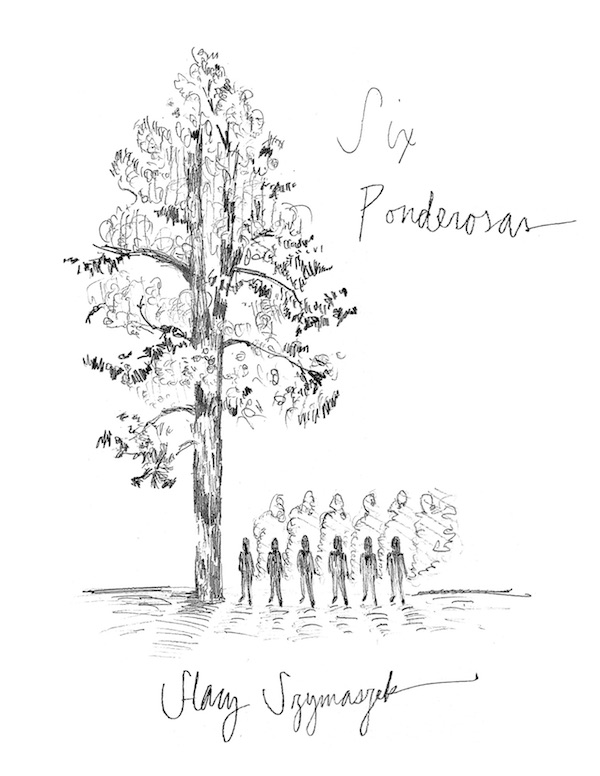 Six
Ponderosas
Stacy Szymaszek